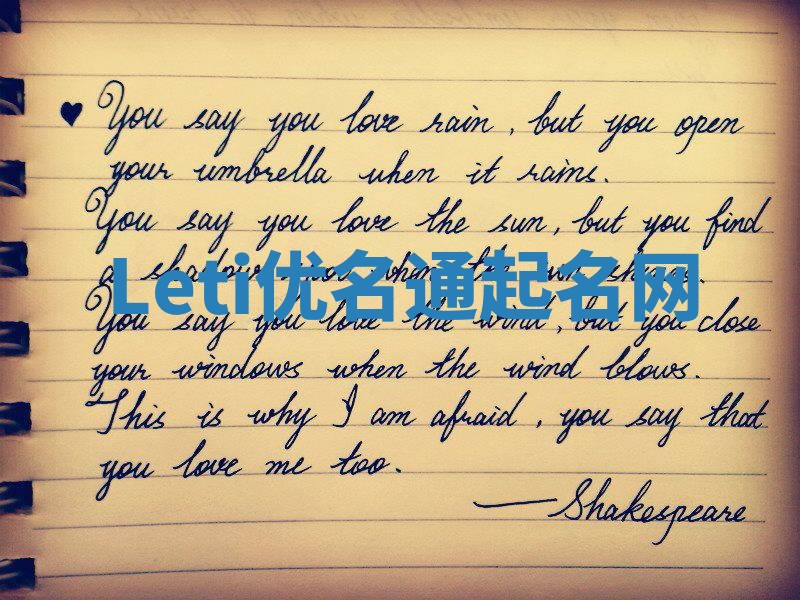 ♥ You say you love rain, but you open
your umbrella when it rains.
You say you love the sun, but you find
a shadow when the sun shines.
Leti优名通起名网
You say you love the wind, but you close
your windows when the wind blows.
This is why I am afraid, you say that
you love me too.
—Shakespeare